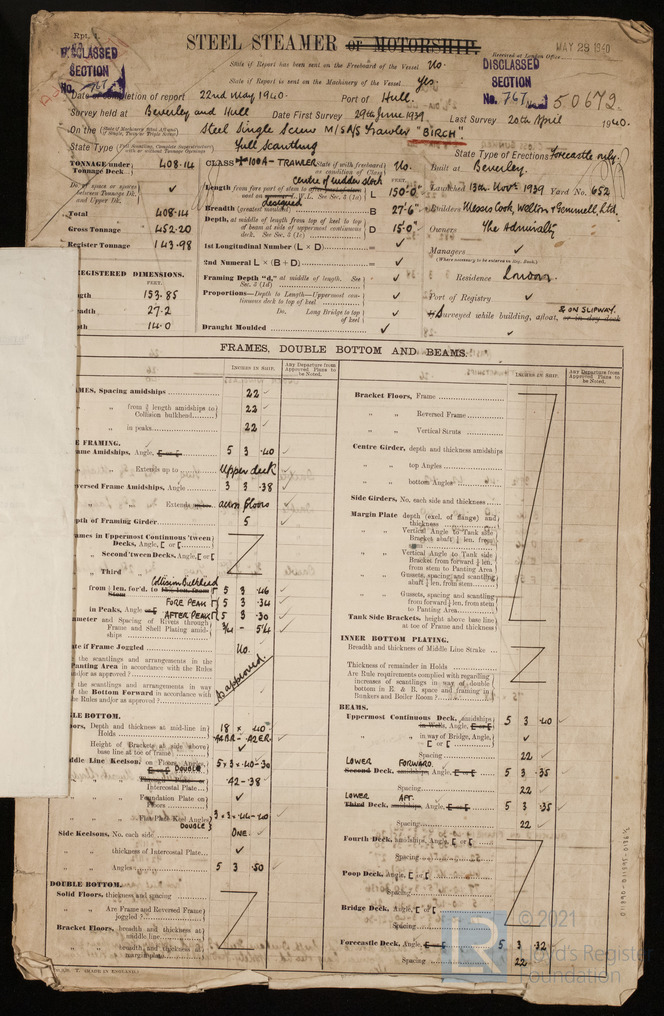 Rpt. 1.
STEEL STEAMER or MOTORSHIP.
Received at London Office
MAY 29 1940
DISCLASSED
SECTION
No. 767
DISCLASSED
SECTION
No. 767
50672
State if Report has been sent on the Freeboard of the Vessel No.
State if Report is sent on the Machinery of the Vessel Yes
Date of completion of report 22nd May 1940. Port of Hull.
Survey held at Beverley and Hull Date First Survey 29th June 1939. Last Survey 20th April 1940.
On the Steel Single Screw M/S A/S Trawler "BIRCH"
State Type Full Scantling State Type of Erections Forecastle only.
TONNAGE under Tonnage Deck 408.14
CLASS +100A-TRAWLER State if with freeboard as condition of Class No.
Built at Beverley.
Do. of space or spaces between Tonnage Dk. and Upper Dk. ✓
centre of rudder stock
Length from fore part of stem to L 150'0"
Launched 13th Novr 1939 Yard No. 652
Total 408.14
Breadth designed B 27'6"
Builders Messrs Cook, Welton & Gemmell, Ltd.
Gross Tonnage 452.20
Depth, at middle of length from top of keel to top of beam at side of uppermost continuous deck. See Sec. 3 (1c) D 15'0"
Owners The Admiralty
Register Tonnage 143.98
1st Longitudinal Number (L × D) = ✓
Managers ✓
2nd Numeral L × (B + D) = ✓
Residence London.
REGISTERED DIMENSIONS.
FEET.
Framing Depth "d," at middle of length. See Sec. 3 (1d) ✓
153.85
Proportions—Depth to Length—Uppermost continuous deck to top of keel ✓
Port of Registry ✓
27.2
Do. Long Bridge to top of keel ✓
& ON SLIPWAY.
Surveyed while building, afloat, or in dry dock
14.0
Draught Moulded ✓
FRAMES, DOUBLE BOTTOM AND BEAMS.
INCHES IN SHIP.
Any Departure from Approved Plans to be Noted.
INCHES IN SHIP.
Any Departure from Approved Plans to be Noted.
AMES, Spacing amidships 22
from 3/5 length amidships to Collision bulkhead 22
in peaks 22
E FRAMING.
ame Amidships, Angle, 5 3 .40
Extends up to Upper deck
versed Frame Amidships, Angle 3 3 .38
Extends across floors
pth of Framing Girder 5
ames in Uppermost Continuous 'tween Decks, Angle, [ or [
Second 'tween Decks, Angle, [ or [
Third
Collision Bulkhead
from 3/5 len. for'd to 5 3 .46
FORE PEAK 5 3 .34
in Peaks, Angle AFTER PEAK 5 3 .30
ameter and Spacing of Rivets through Frame and Shell Plating amidships 3/4 - 5 1/4
ate if Frame Joggled No.
the scantlings and arrangements in the Panting Area in accordance with the Rules and/or as approved?
As approved.
the scantlings and arrangements in way of the Bottom Forward in accordance with the Rules and/or as approved?
LE BOTTOM.
oors, Depth and thickness at mid-line in Holds 18 × .40
.42 BR - .42 ER
Height of Brackets at side above base line at toe of frame ✓
ddle Line Keelson, on Floors, Angles, DOUBLE 5 × 3 × .40-.30
Intercostal Plate .42-.38
Foundation Plate on Floors ✓
Flat Plate Keel Angles DOUBLE 3 × 3 × .44-.40
Side Keelsons, No. each side ONE
thickness of Intercostal Plate ✓
Angles 5 3 .50
DOUBLE BOTTOM.
Solid Floors, thickness and spacing
Are Frame and Reversed Frame joggled?
Bracket Floors, breadth and thickness at middle line
breadth and thickness at margin plate
Bracket Floors, Frame
Reversed Frame
Vertical Struts
Centre Girder, depth and thickness amidships
top Angles
bottom Angles
Side Girders, No. each side and thickness
Margin Plate depth (excl. of flange) and thickness
Vertical Angle to Tank side Bracket abaft 1/4 len. from stem
Vertical Angle to Tank side Bracket from forward 1/4 len. from stem to Panting Area
Gussets, spacing and scantling abaft 1/4 len. from stem
Gussets, spacing and scantling from forward 1/4 len. from stem to Panting Area
Tank Side Brackets, height above base line at toe of Frame and thickness
INNER BOTTOM PLATING.
Breadth and thickness of Middle Line Strake
Thickness of remainder in Holds
Are Rule requirements complied with regarding increases of scantlings in way of double bottom in E. & B. space and framing in Bunkers and Boiler Room?
BEAMS.
Uppermost Continuous Deck, amidships 5 3 .40
in way of Bridge, Angle, [ or [ ✓
Spacing 22
LOWER FORWARD.
Second Deck, amidships, Angle, 5 3 .35
Spacing 22
LOWER AFT.
Third Deck, amidships, Angle, 5 3 .35
Spacing 22
Fourth Deck, amidships, Angle, [ or [
Spacing
Poop Deck, Angle, [ or [
Spacing
Bridge Deck, Angle, [ or [
Spacing
Forecastle Deck, Angle, 5 3 .32
Spacing 22
© 2021
Lloyd's Register
Foundation